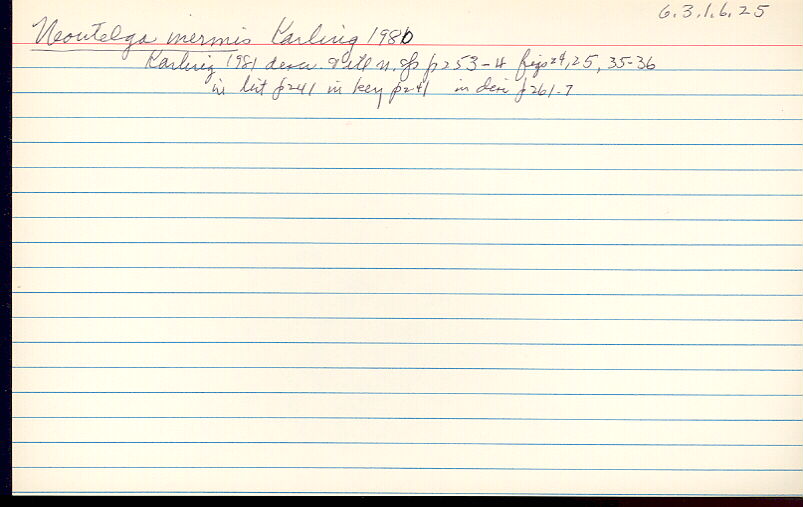 6.3.1.6.25
Neoutelga inermis Karling 1980
Karling 1981 descr. & ill n. sp p253-4 figs 24, 25, 35-36
in list p241 in key p241 in disc p261-7